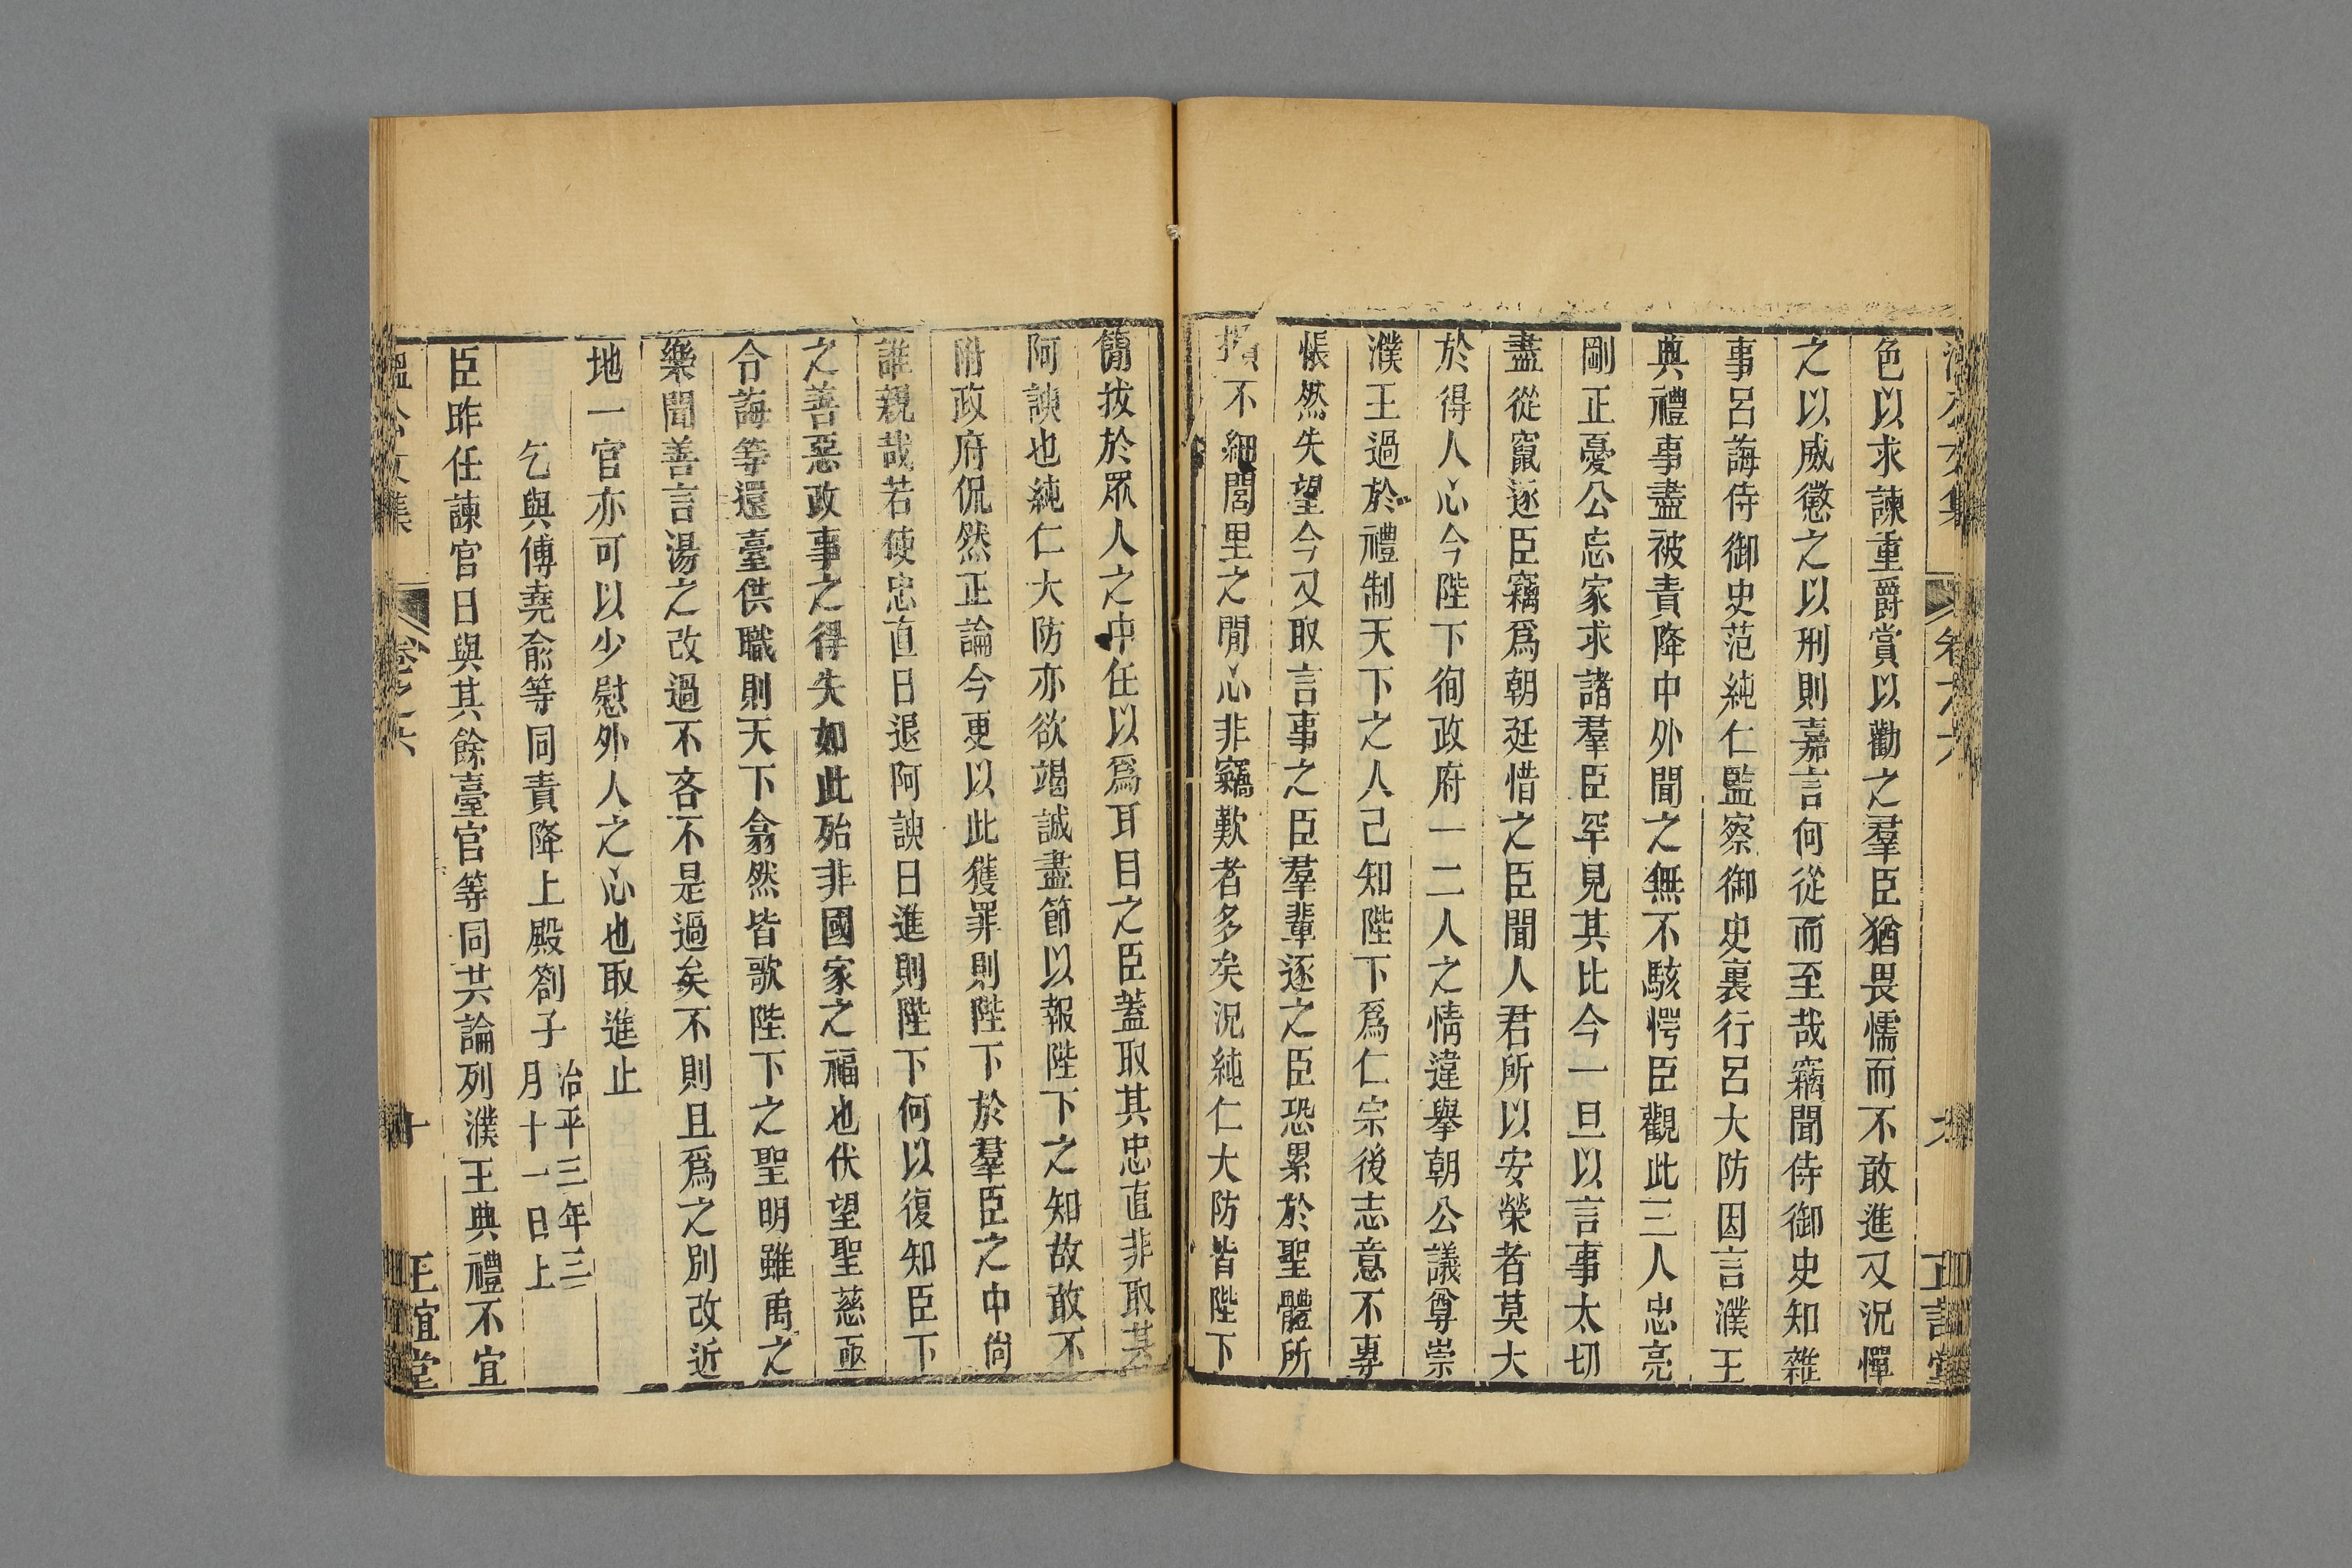 色以求諫重爵賞以勸之羣臣猶畏懦而不敢進又況憚
之以威懲之以刑則嘉言何從而至哉竊聞侍御史知雜
事呂誨侍御史范純仁監察御史裏行呂大防因言濮王
典禮事盡被責降中外聞之無不駭愕臣觀此三人忠亮
剛正憂公忘家求諸羣臣罕見其比今一旦以言事太切
盡從竄逐臣竊爲朝廷惜之臣聞人君所以安榮者莫大
於得人心今陛下徇政府一二人之情違舉朝公議尊崇
濮王過於禮制天下之人已知陛下爲仁宗後志意不專
悵然失望今又取言事之臣羣輩逐之臣恐累於聖體所
損不細閭里之間心非竊歎者多矣況純仁大防皆陛下
簡拔於眾人之中任以爲耳目之臣蓋取其忠直非取其
阿諛也純仁大防亦欲竭誠盡節以報陛下之知故敢不
附政府侃然正論今更以此獲罪則陛下於羣臣之中尚
誰親哉若使忠直日退阿諛日進則陛下何以復知臣下
之善惡政事之得失如此殆非國家之福也伏望聖慈亟
令誨等還臺供職則天下翕然皆歌陛下之聖明雖禹之
樂聞善言湯之改過不吝不是過矣不則且爲之別改近
地一官亦可以少慰外人之心也取進止
乞與傅堯俞等同責降上殿劄子
治平三年三
月十一日上
臣昨任諫官日與其餘臺官等同共論列濮王典禮不宜
溫公文集
卷之六
十
正誼堂